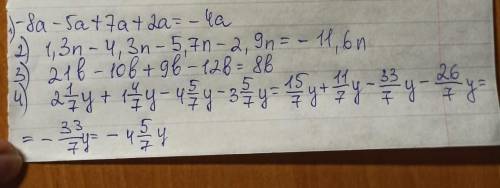 1) -8a - 5a + 7a + 2a = - 4a
2) 1,3n - 4,3n - 5,7n - 2,9n = - 11,6n
3) 21в - 10в + 9в - 12в = 8в
4) 2 1/7 y + 1 4/7 y - 4 5/7 y - 3 5/7 y = 15/7 y + 11/7 y - 33/7 y - 26/7 y =
= - 33/7 y = - 4 5/7 y